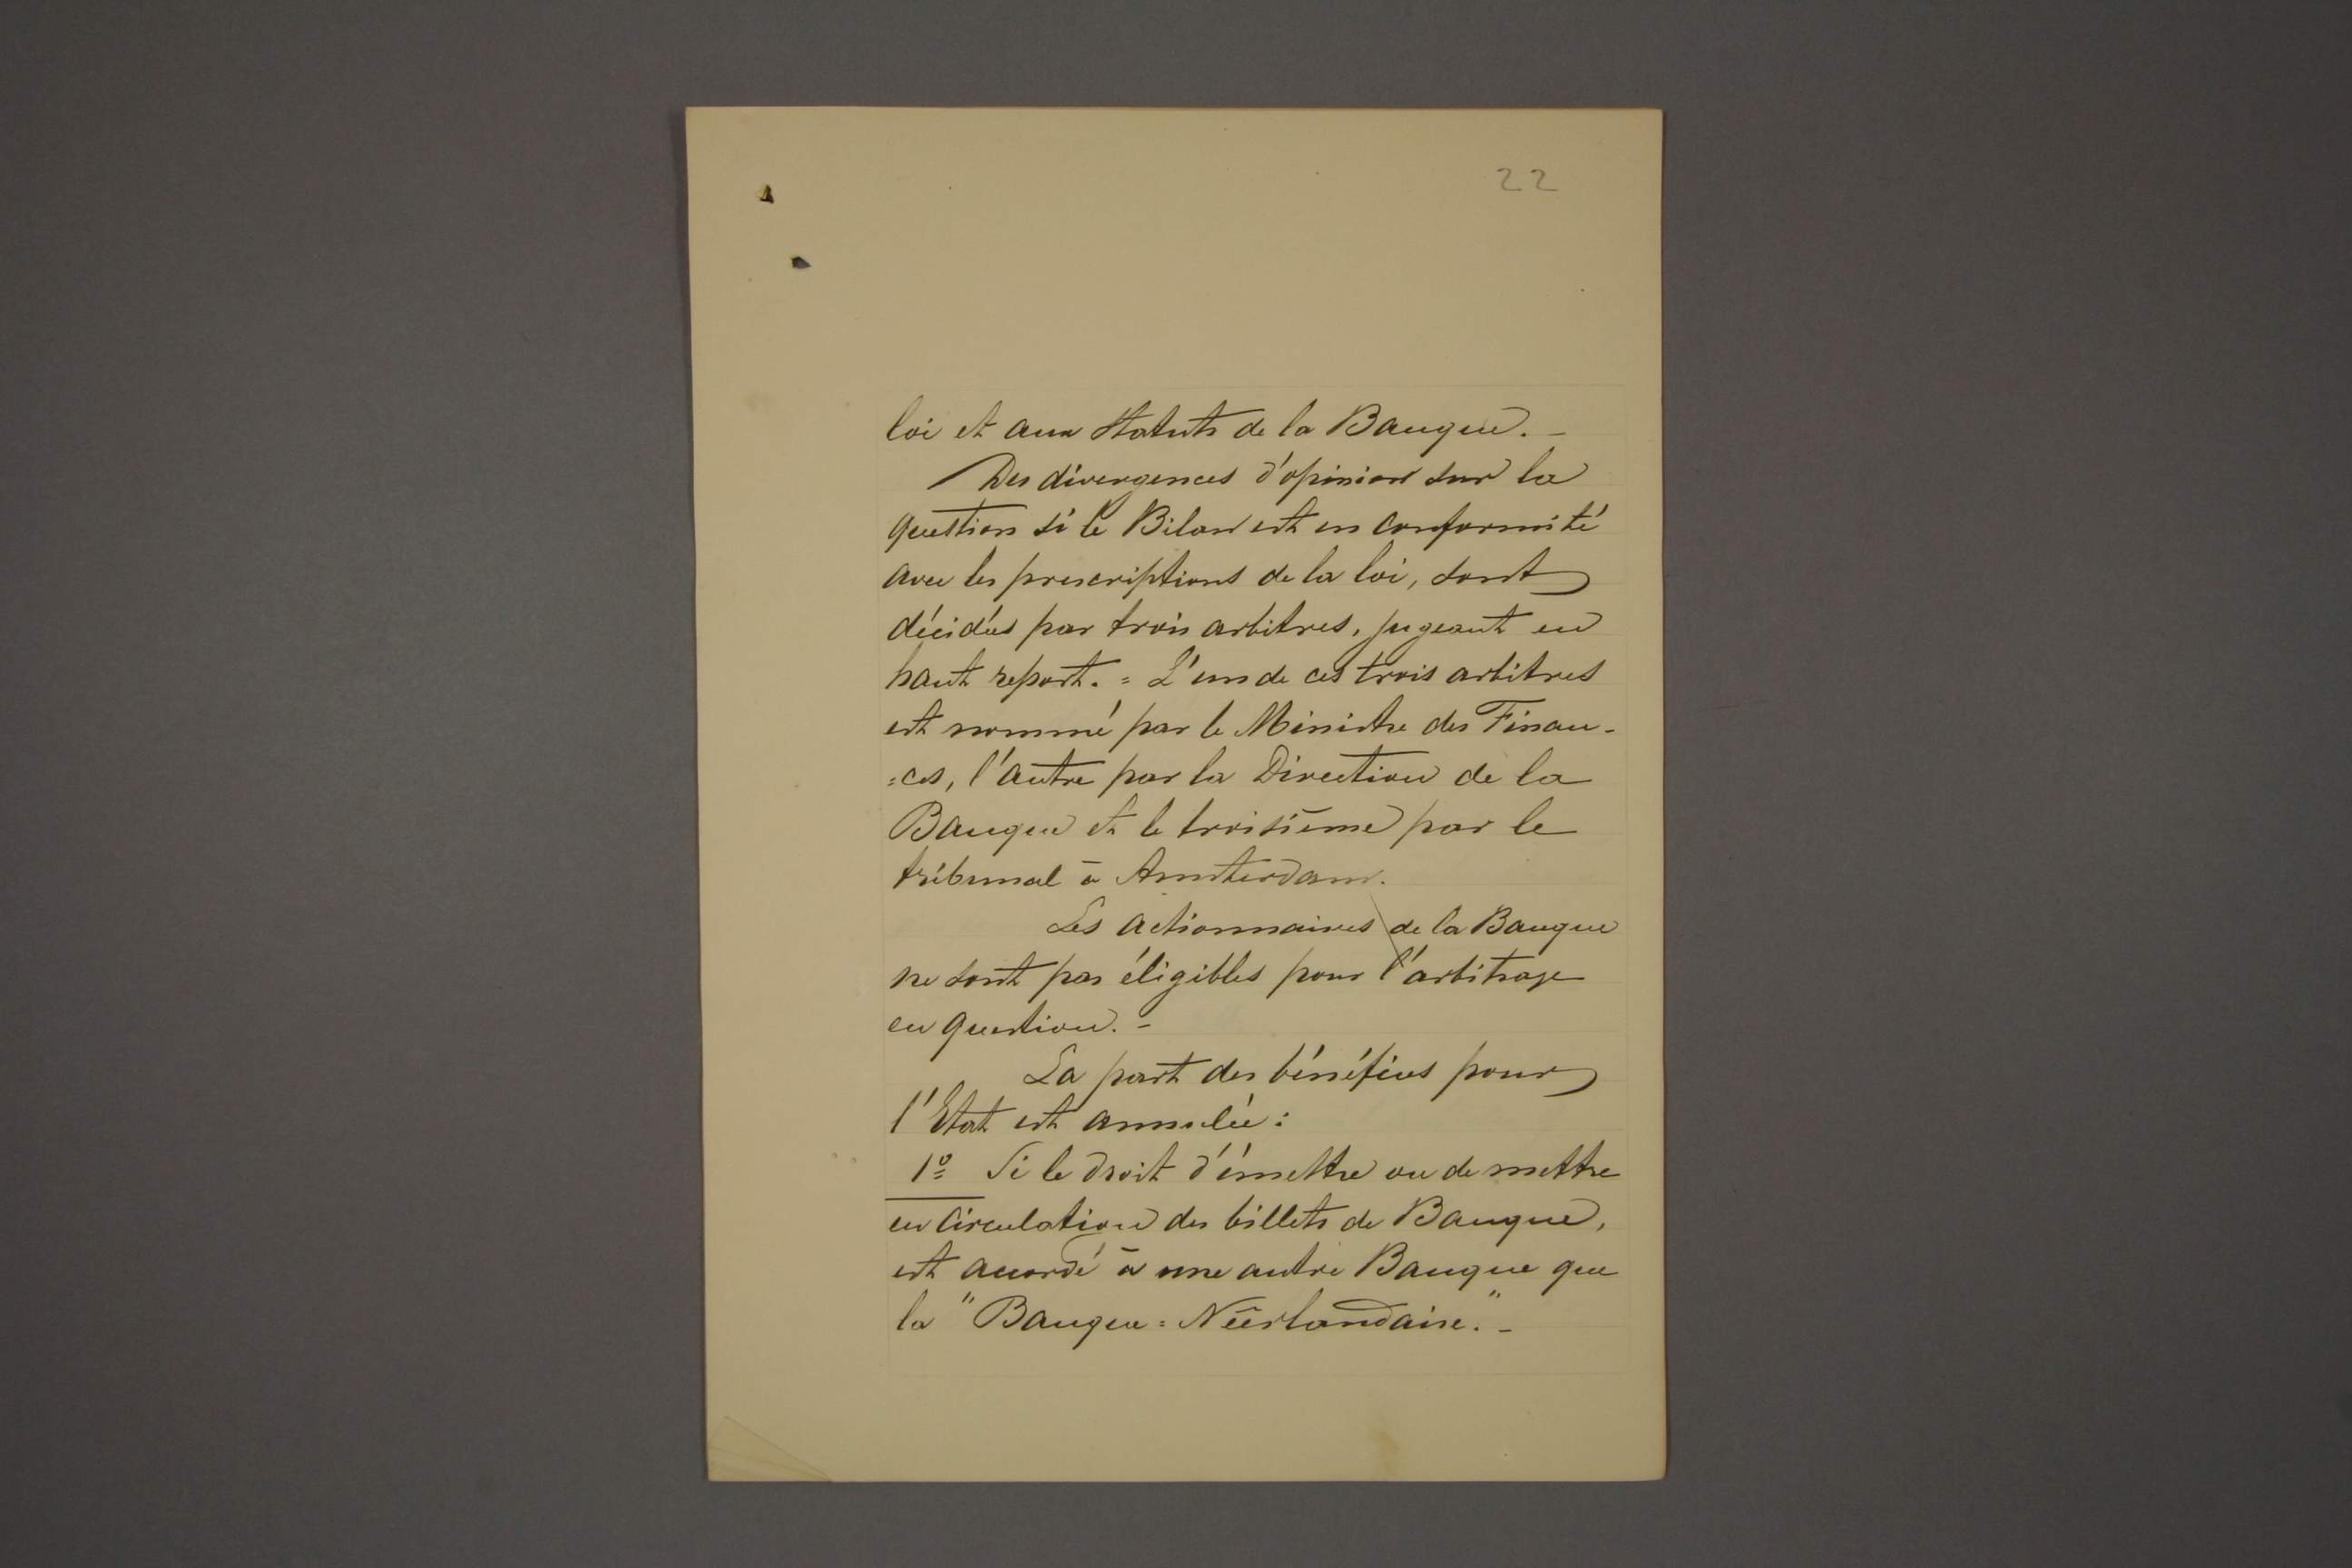 22
loi et aux Statuts de la Banque. -
Des divergences d'opinion sur la
question si le Bilan est en conformité
avec les prescriptions de la loi, sont
décidés par trois arbitres, jugeant en
haut report. = L'un de ces trois arbitres
est nommé par le Ministre des Finan-
=ces, l'autre par la Direction de la
Banque et le troisième par le
tribunal à Amsterdam.
Les actionnaires de la Banque
ne sont pas éligibles pour l'arbitrage
en question. -
La part des bénéfices pour
l'Etat est annulée:
1º Si le droit d'émettre ou de mettre
en circulation des billets de Banque,
est accordé à une autre Banque que
la "Banque = Néerlandaise." -